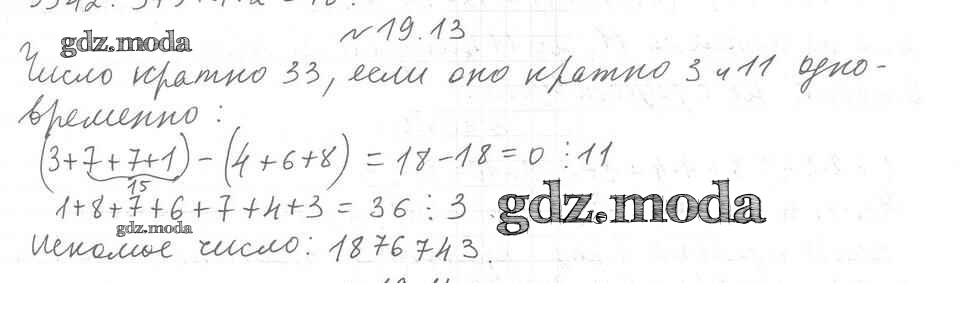 №19.13
gdz.moda
Число кратно 33, если оно кратно 3 и 11 одно-
временно:
(3+7+7+1) - (4+6+8) = 18-18=0 ⋮11
15
1+8+7+6+7+4+3 = 36 ⋮ 3
gdz.moda
gdz.moda
Искомое число: 1876743.